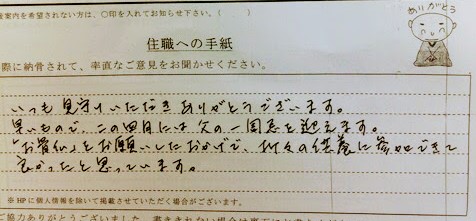 案内を希望されない方は、○印を入れてお知らせ下さい。（　　）
ありがとう
住職への手紙
際に納骨されて、率直なご意見をお聞かせください。
いつも見守りいただきありがとうございます。
早いもので、この四日には父の一周忌を迎えます。
「お貴仏」とお願いしたおかげで、折々の供養に参加できて
良かったと思っています。
※HPに個人情報を除いて掲載させていただく場合がございます。
ご協力ありがとうございました。書ききれない場合は裏面に